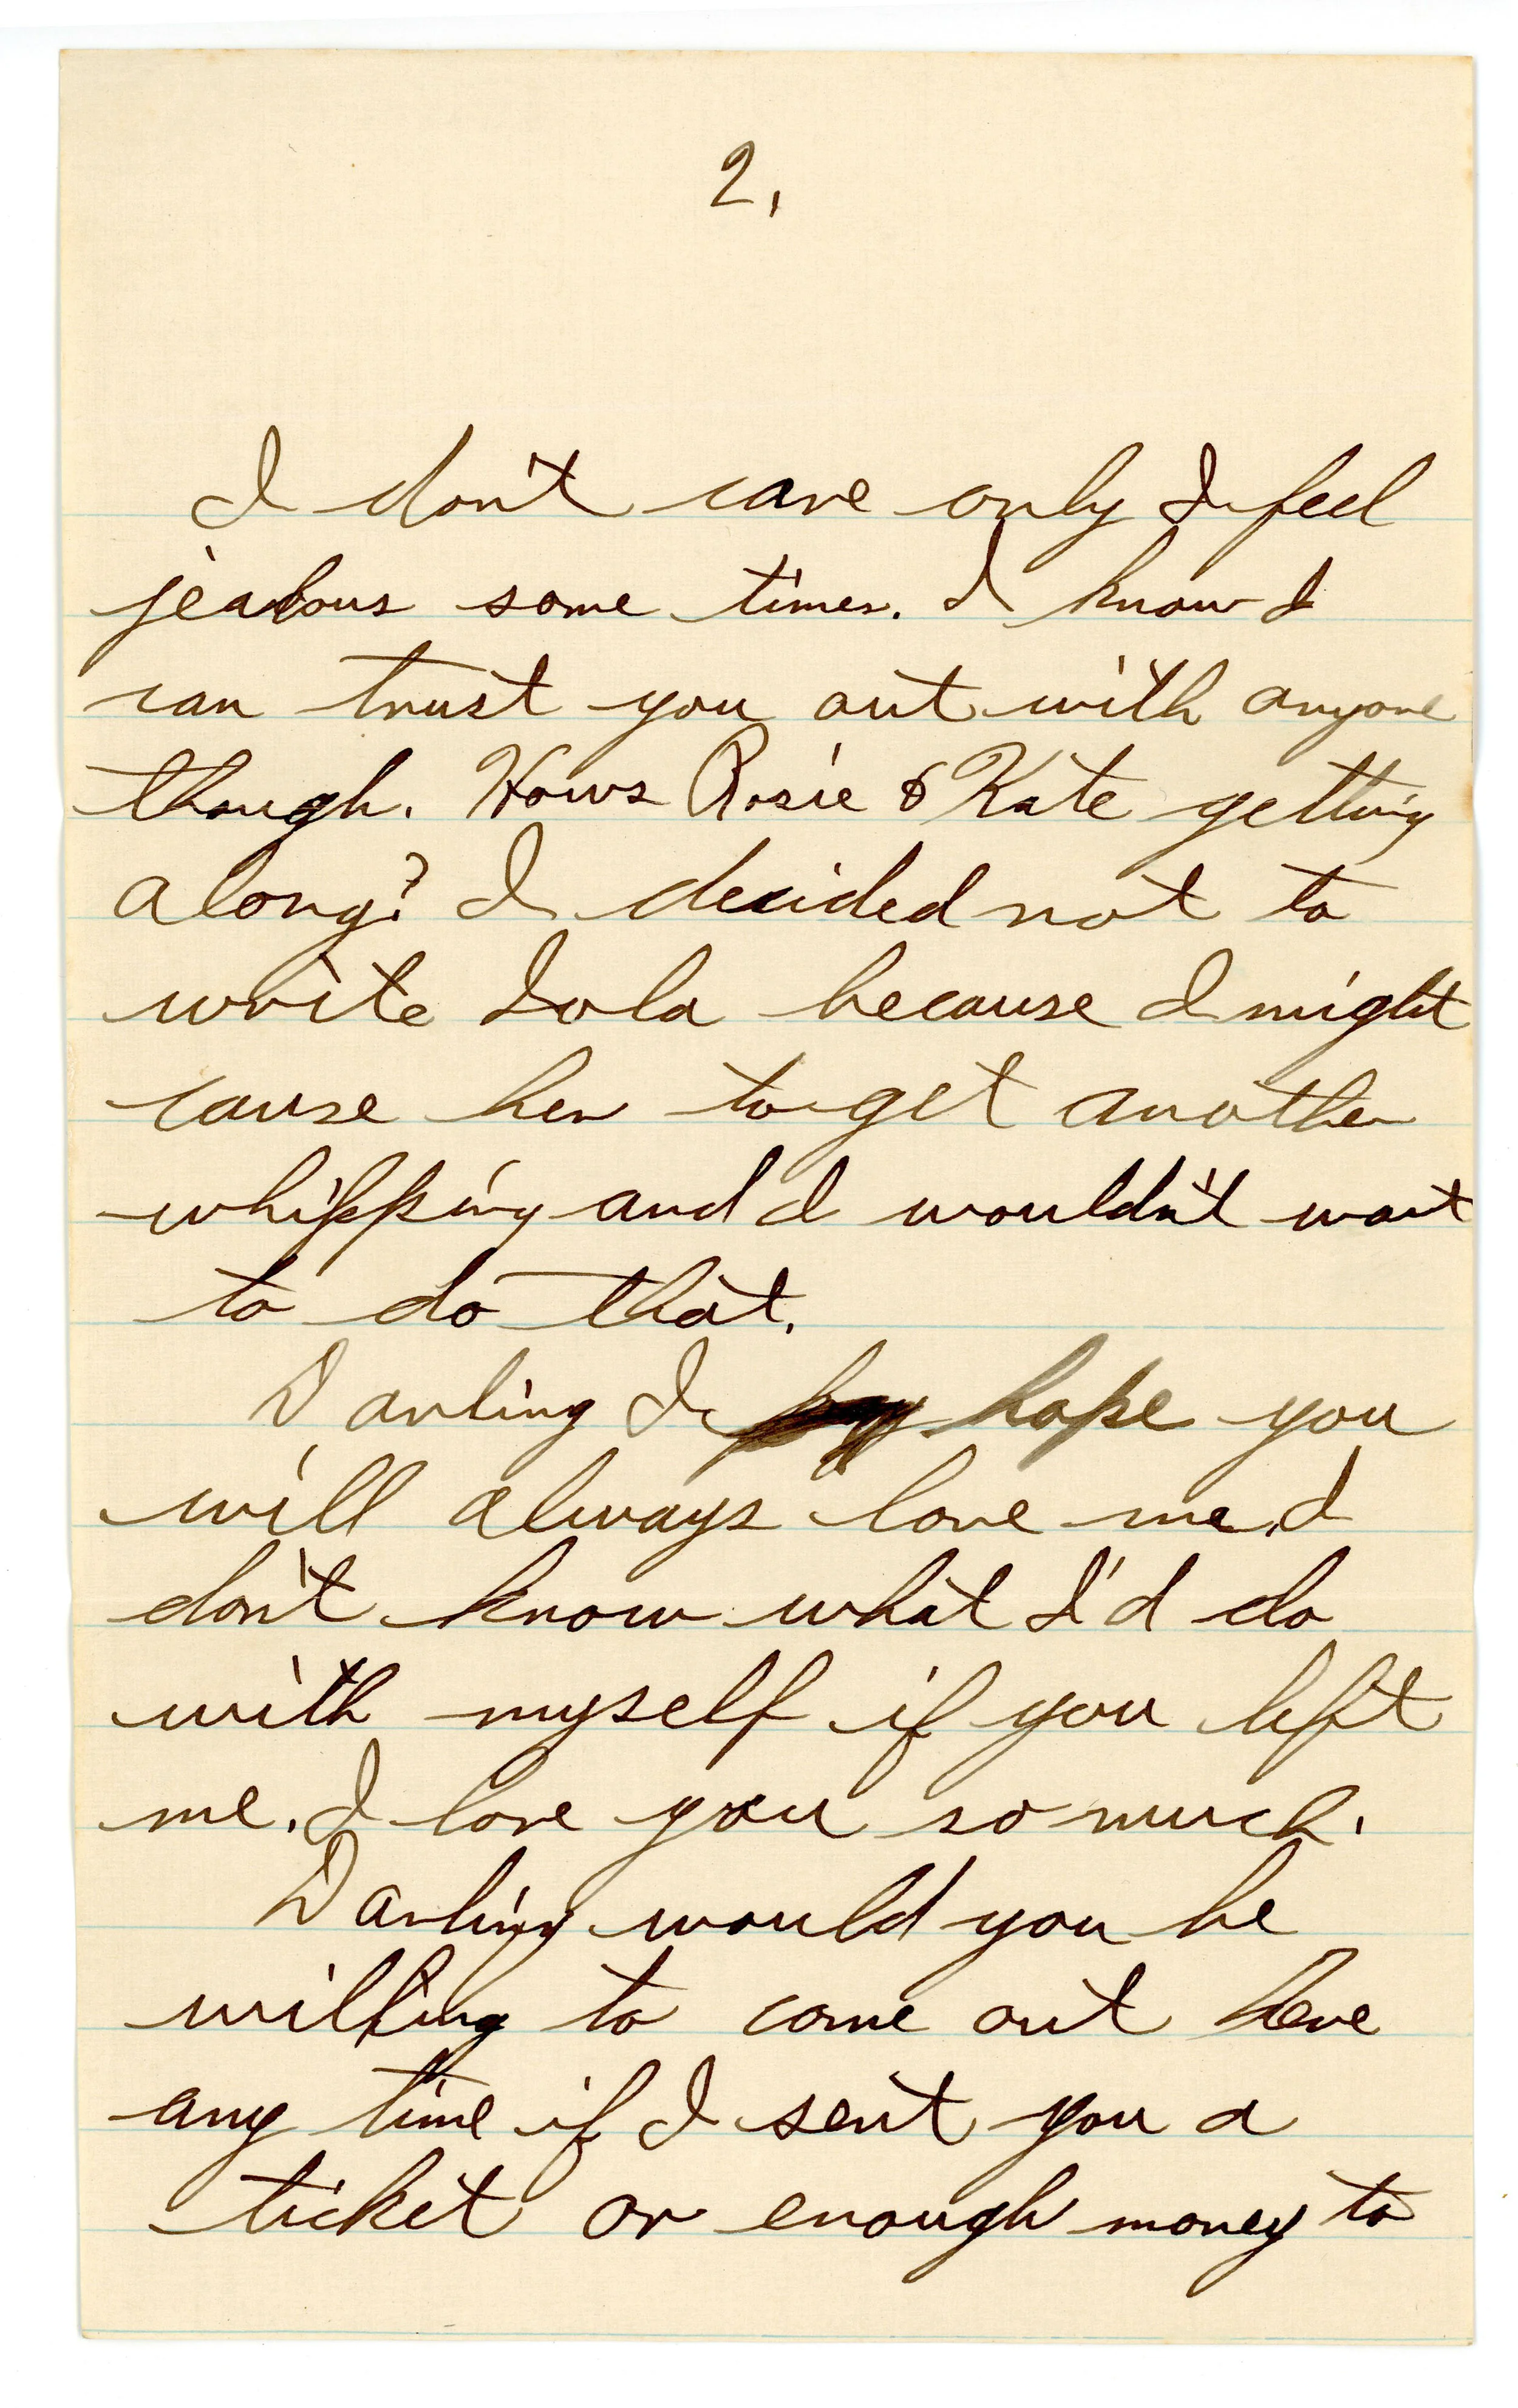 2.
I don't care only I feel
jealous some times. I know I
can trust you out with anyone
though. Hows Rosie & Kate getting
along? I decided not to
write Lola because I might
cause her to get another
whipping and I wouldn't want
to do that.
Darling I hope you
will always love me. I
don't know what I'd do
with myself if you left
me. I love you so much.
Darling would you be
willing to come out here
any time if I sent you a
ticket or enough money to